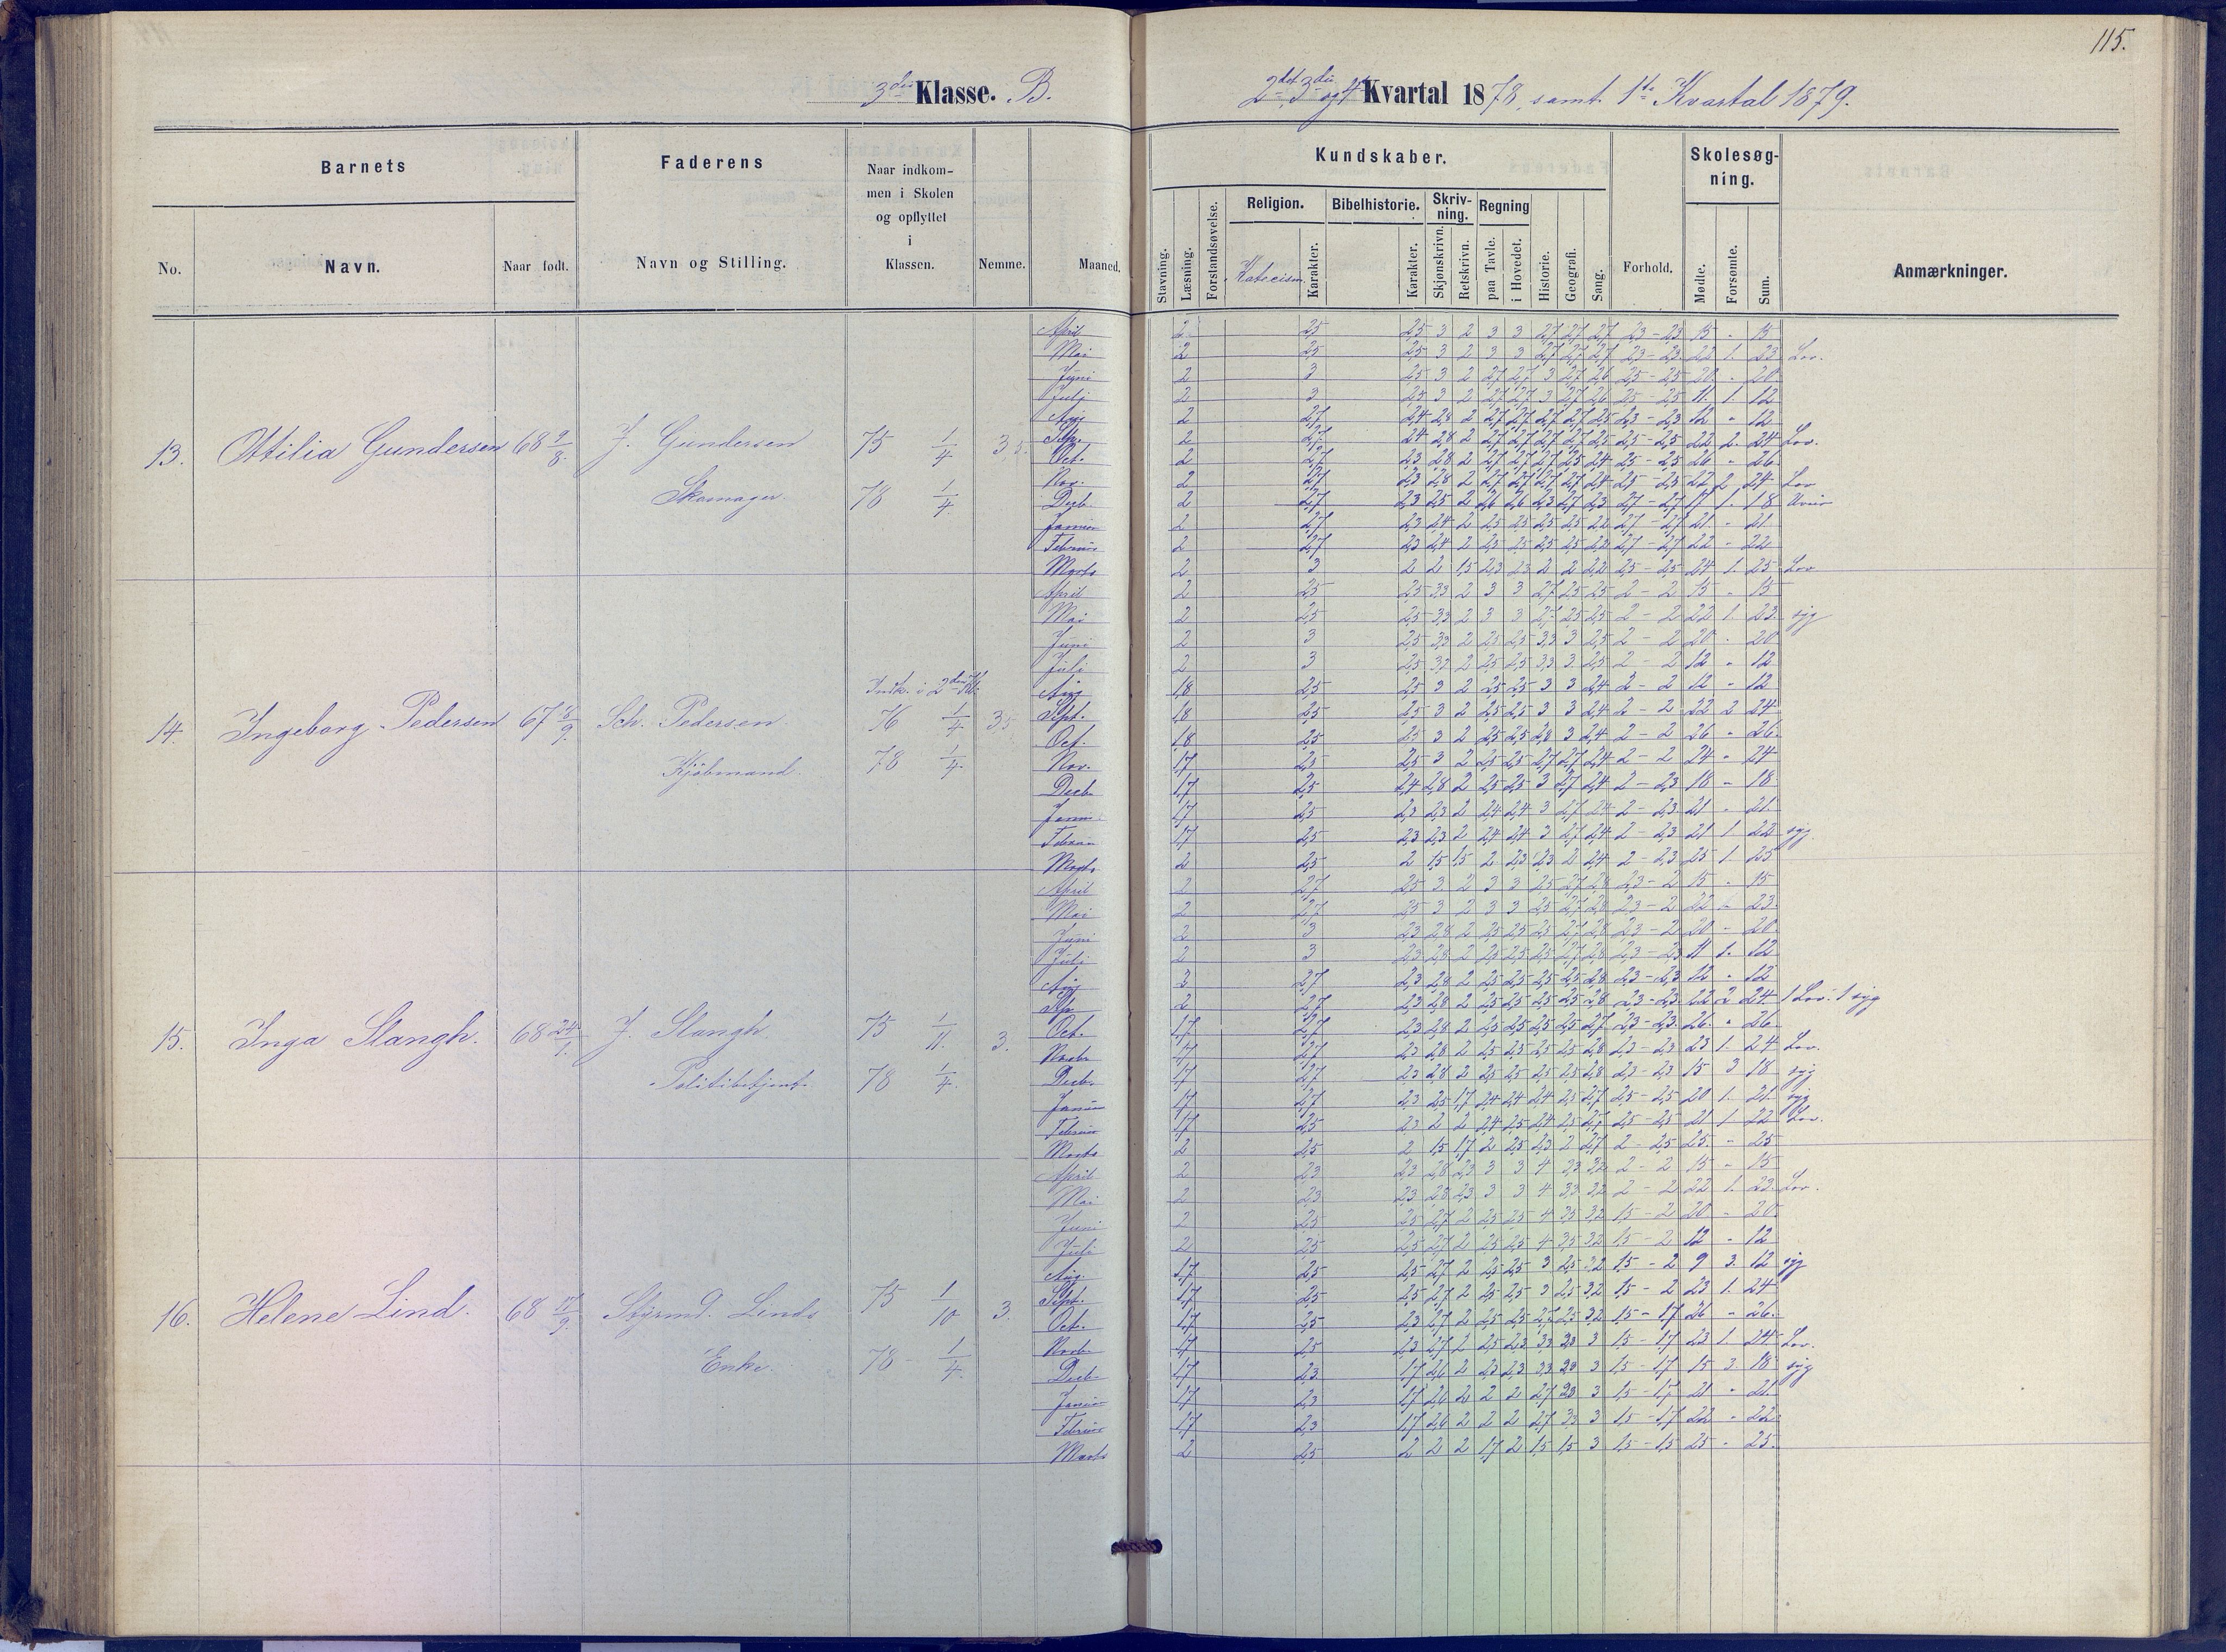 115.
3die Klasse. B.
2det 3die og 4 Kvartal 1878, samt 1ste Kvartal 1879.
Barnets
Faderens
Naar indkom-
men i Skolen
og opflyttet
i
Klassen.
No.
Navn.
Naar født.
Navn og Stilling.
Nemme.
Maaned.
Kundskaber.
Skolesøg-
ning.
Religion.
Bibelhistorie.
Skriv-
ning.
Regning
Stavning.
Læsning.
Forstandsøvelse.
Katecism.
Karakter.
Karakter.
Skjønskrivn.
Retskrivn.
paa Tavle.
i Hovedet.
Historie.
Geografi.
Sang.
Forhold.
Mødte.
Forsømte.
Sum.
Anmærkninger.
13. Ottilia Gundersen 68 9/8 J. Gundersen 75 1/4 3,5
Skomager. 78 1/4
April 2 2,5 2,5 3 2 3 3 2,7 2,7 2,7 2,3 - 2,3 15 - 15
Mai 2 2,5 2,5 3 2 3 3 2,7 2,7 2,7 2,3 - 2,3 22 1 23 Lov.
Juni 2 3 2,5 3 2 2,7 2,7 3 2,7 2,6 2,5 - 2,5 20 - 20
Juli 2 3 2,5 3 2 2,7 2,7 3 2,7 2,6 2,5 - 2,5 11 1 12
Aug 2 2,7 2,4 2,8 2 2,7 2,7 2,7 2,7 2,5 2,3 - 2,3 12 - 12
Sep. 2 2,7 2,4 2,8 2 2,7 2,7 2,7 2,7 2,5 2,5 - 2,5 22 2 24 Lov.
Oct. 2 2,7 2,3 2,8 2 2,7 2,7 2,7 2,5 2,4 2,5 - 2,5 26 - 26
Nov. 2 2,7 2,3 2,8 2 2,7 2,7 2,7 2,7 2,4 2,5 - 2,5 22 2 24 Lov
Decb. 2 2,7 2,3 2,5 2 2,6 2,6 2,3 2,7 2,3 2,7 - 2,7 17 1 18
Januar 2 2,7 2,3 2,4 2 2,5 2,5 2,5 2,5 2,2 2,7 - 2,7 21 - 21
Februar 2 2,7 2,3 2,4 2 2,5 2,5 2,5 2,5 2,2 2,7 - 2,7 22 - 22
Marts 2 3 2 2 1,5 2,3 2,3 2 2 2,2 2,5 - 2,5 24 1 25 Lov
14. Ingeborg Pedersen 67 18/9 Sch. Pedersen 76 1/4 3,5
Kjøbmand. 78 1/4
April 2 2,5 2,5 3,3 2 3 3 2,7 2,5 2,5 2 - 2 15 - 15
Mai 2 2,5 2,5 3,3 2 3 3 2,7 2,5 2,5 2 - 2 22 1 23 syg
Juni 2 3 2,5 3,3 2 2,5 2,5 3,3 3 2,5 2 - 2 20 - 20
Juli 2 3 2,5 3,3 2 2,5 2,5 3,3 3 2,5 2 - 2 12 - 12
Aug 1,8 2,5 2,5 3 2 2,5 2,5 3 3 2,4 2 - 2 12 - 12
Sept. 1,8 2,5 2,5 3 2 2,5 2,5 3 3 2,4 2 - 2 22 2 24
Oct. 1,8 2,5 2,5 3 2 2,5 2,5 2,8 3 2,4 2 - 2 26 - 26
Nov. 1,7 2,5 2,5 3 2 2,5 2,5 2,7 2,7 2,4 2 - 2 24 - 24
Decb 1,7 2,5 2,4 2,8 2 2,5 2,5 3 2,7 2,4 2 - 2,3 18 - 18
Januar 1,7 2,5 2,3 2,3 2 2,4 2,4 3 2,7 2,4 2 - 2,3 21 - 21
Februar 1,7 2,5 2,3 2,3 2 2,4 2,4 3 2,7 2,4 2 - 2,3 21 1 22 syg
Marts 2 2,5 2 1,5 1,5 2 2,3 2,3 2 2,4 2 - 2,3 25 1 25
15. Inga Slangh. 68 24/1 J. Slangh. 75 1/11 3.
Politibetjent 78 1/4
April 2 2,7 2,5 3 2 3 3 2,5 2,7 2,8 2,3 - 2 15 - 15
Mai 2 2,7 2,5 3 2 3 3 2,5 2,7 2,8 2,3 - 2 22 - 23
Juni 2 3 2,3 2,8 2 2,5 2,5 2,5 2,7 2,8 2,3 - 2 20 - 20
Juli 2 3 2,3 2,8 2 2,5 2,5 2,5 2,7 2,8 2,3 - 2,3 11 1 12
Aug 2 2,7 2,3 2,8 2 2,5 2,5 2,5 2,5 2,8 2,3 - 2,3 12 - 12
Sep 2 2,7 2,3 2,8 2 2,5 2,5 2,5 2,5 2,8 2,3 - 2,3 22 2 24 1 Lov. 1 syg
Oct. 1,7 2,7 2,3 2,8 2 2,5 2,5 2,5 2,5 2,7 2,3 - 2,3 26 - 26
Novbr 1,7 2,7 2,3 2,8 2 2,5 2,5 2,5 2,5 2,8 2,3 - 2,3 23 1 24 Lov.
Decbr 1,7 2,7 2,3 2,8 2 2,5 2,5 2,5 2,5 2,8 2,3 - 2,3 15 3 18 syg
Januar 1,7 2,7 2,3 2,5 1,7 2,4 2,4 2,4 2,5 2,7 2,5 - 2,5 20 1 21 syg
Februar 1,7 2,5 2,3 2 2 2,4 2,5 2,4 2,5 2,7 2,5 - 2,5 21 1 22 Lov.
Marts 2 2,5 2 1,5 1,7 2 2,5 2,3 2 2,7 2 - 2,5 25 - 25
16. Helene Lind. 68 17/9 Styrmd. Linds 75 1/10 3.
Enke. 78 1/4
April 2 2,3 2,3 2,8 2,3 3 3 4 3,3 3,2 2 - 2 15 - 15
Mai 2 2,3 2,3 2,8 2,3 3 3 4 3,3 3,2 2 - 2 22 1 23 Lov.
Juni 2 2,5 2,5 2,7 2 2,5 2,5 4 3,5 3,2 1,5 - 2 20 - 20
Juli 2 2,5 2,5 2,7 2 2,5 2,5 4 3,5 3,2 1,5 - 2 12 - 12
Aug 1,7 2,5 2,5 2,7 2 2,5 2,5 3 2,5 3,2 1,5 - 2 9 3 12 syg
Sept. 1,7 2,5 2,5 2,7 2 2,5 2,5 3 2,5 3,2 1,5 - 2 23 1 24
Oct. 1,7 2,5 2,3 2,7 2 2,5 2,5 2,7 2,5 3,2 1,5 - 1,7 26 - 26
Novbr 1,7 2,5 2,3 2,7 2 2,5 2,3 3,3 2,3 3 1,5 - 1,7 23 1 24 Lov.
Decb 1,7 2,3 1,7 2,6 2 2,3 2,3 3,3 2,3 3 1,5 - 1,7 15 3 18 syg
Januar 1,7 2,3 1,7 2,6 2 2 2 2,7 2,3 3 1,5 - 1,7 21 - 21
Februar 1,7 2,3 1,7 2,6 2 2 2 2,7 3,3 3 1,5 - 1,7 22 - 22
Marts 2 2,5 2 2 2 1,7 2 1,5 1,5 3 1,5 - 1,5 25 - 25